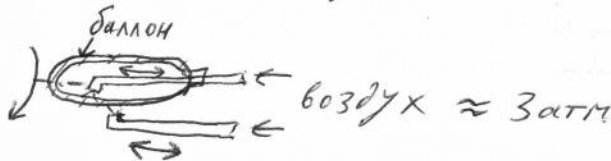 баллон
воздух ≈ 3 атм